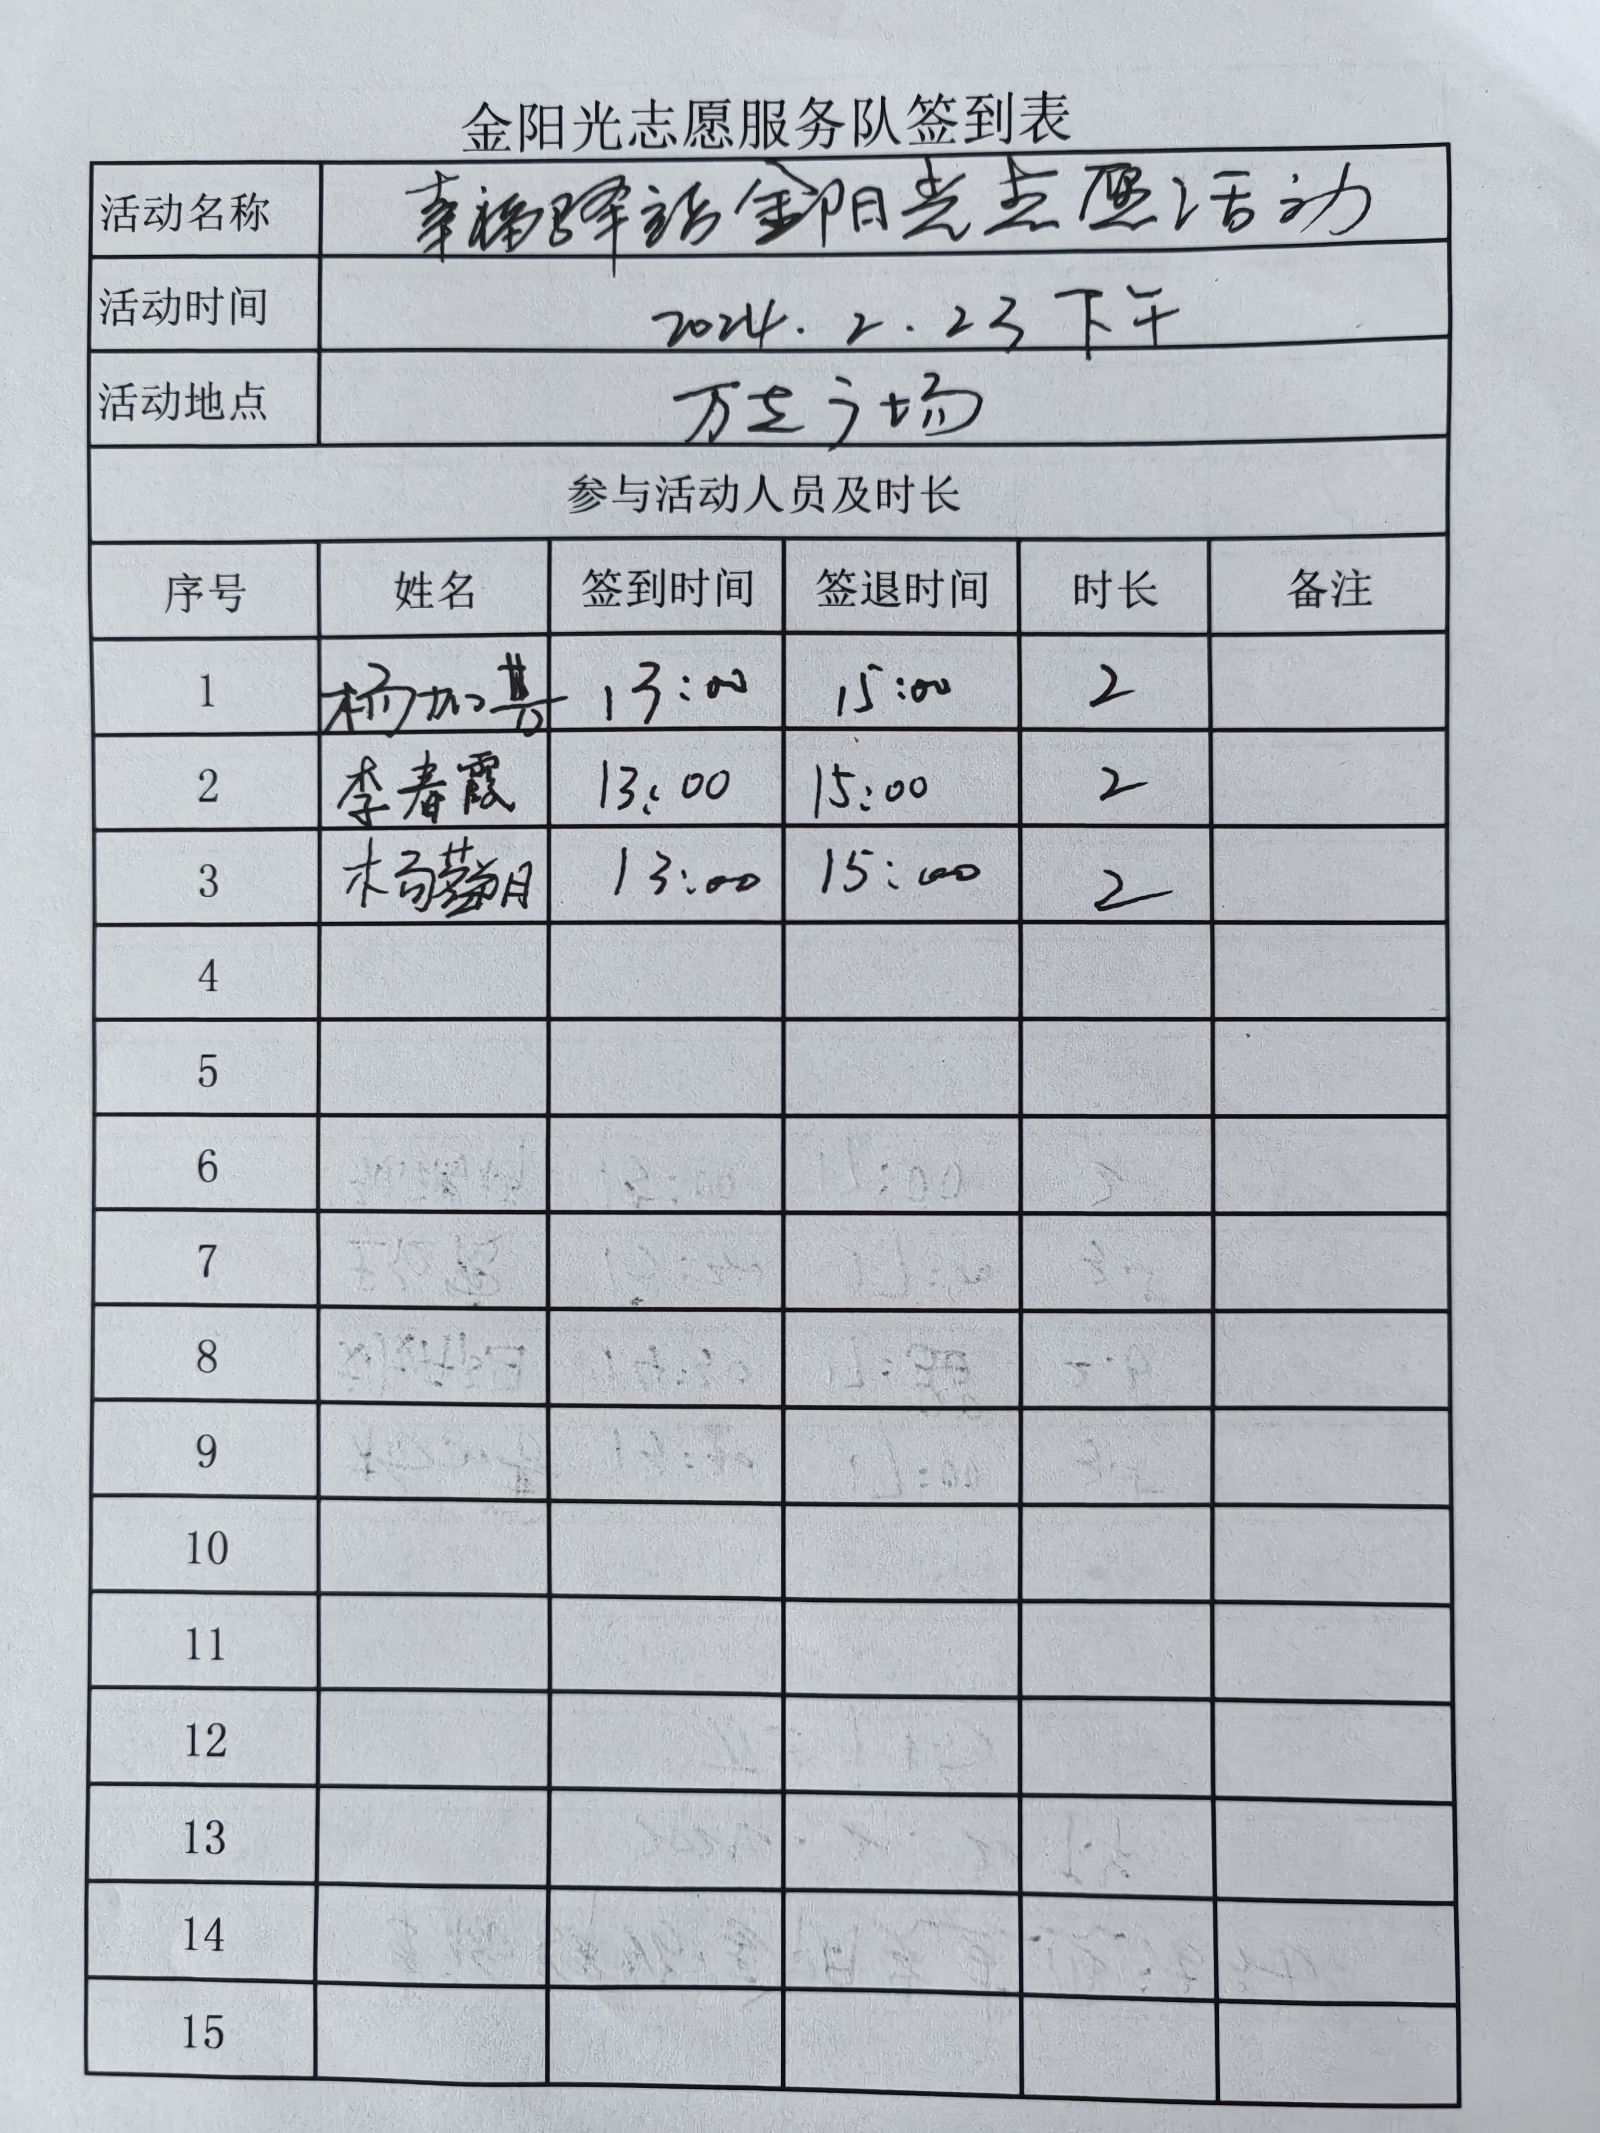 金阳光志愿服务队签到表
活动名称 幸福驿站金阳光志愿活动
活动时间 2024.2.23下午
活动地点 万达广场
参与活动人员及时长
序号 姓名 签到时间 签退时间 时长 备注
1 杨加 13:00 15:00 2
2 李春霞 13:00 15:00 2
3 杨 13:00 15:00 2
4
5
6
7
8
9
10
11
12
13
14
15